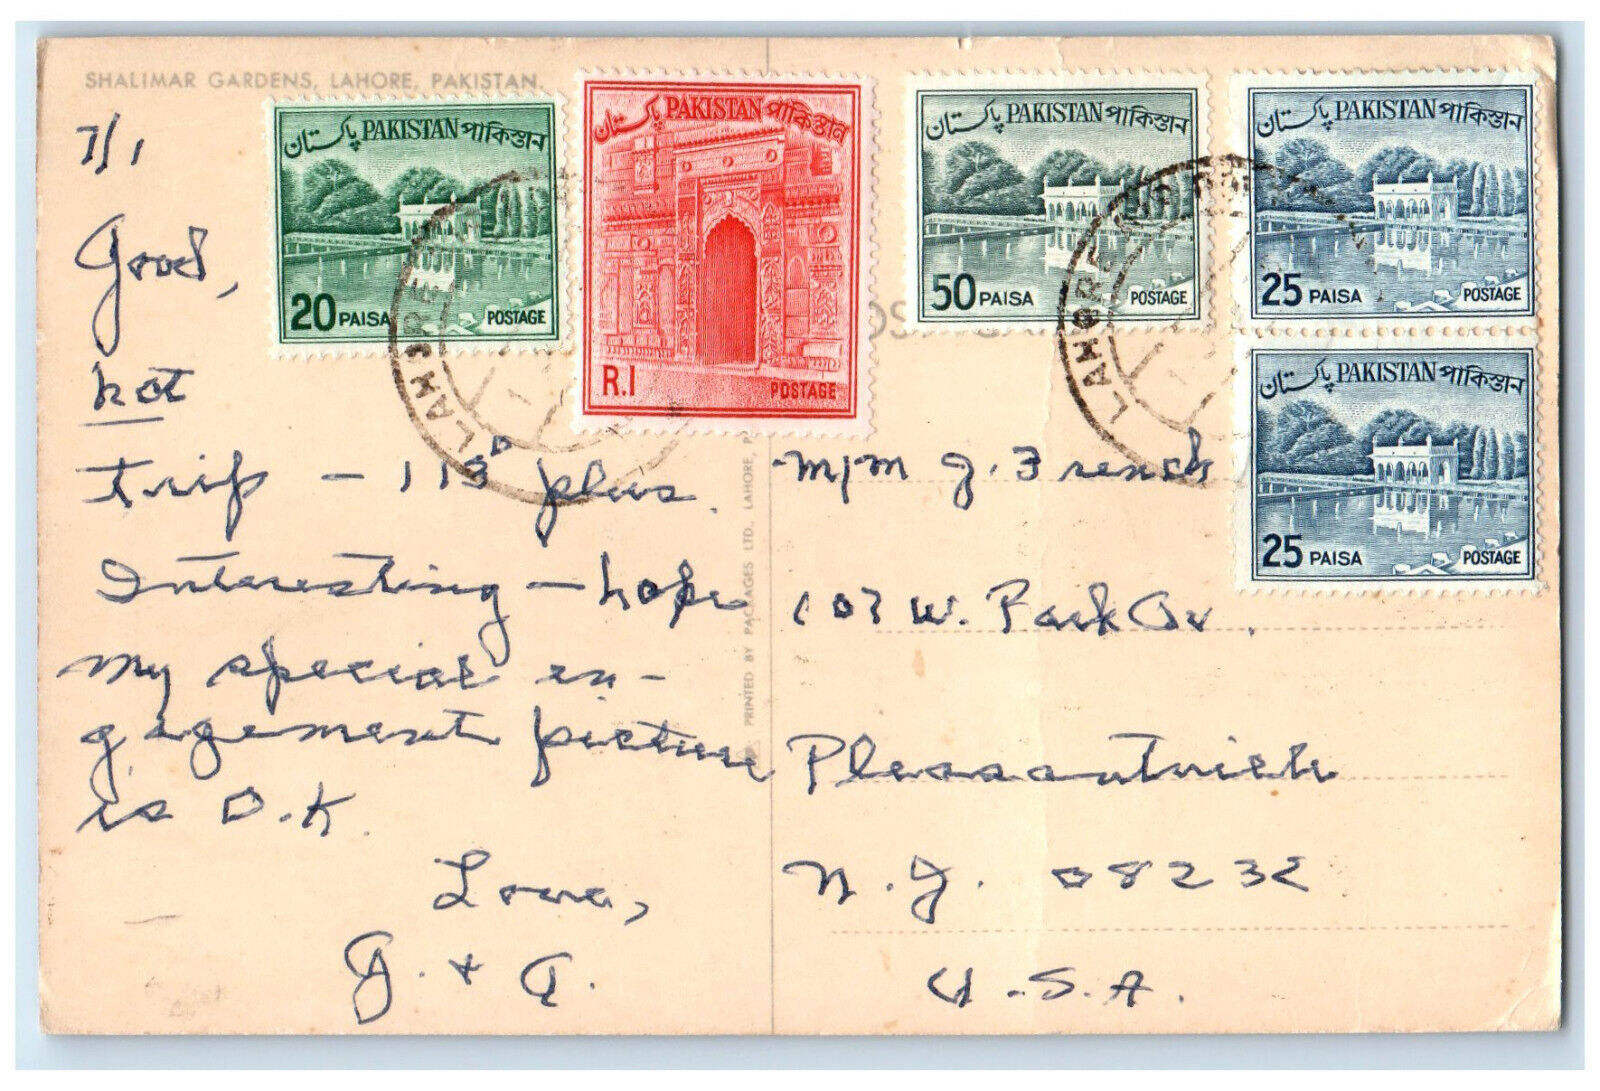 SHALIMAR GARDENS, LAHORE, PAKISTAN.
پاکستان PAKISTAN পাকিস্তান
20 PAISA POSTAGE
پاکستان PAKISTAN পাকিস্তান
R.1 POSTAGE
پاکستان PAKISTAN পাকিস্তান
50 PAISA POSTAGE
پاکستان PAKISTAN পাকিস্তান
25 PAISA POSTAGE
پاکستان PAKISTAN পাকিস্তান
25 PAISA POSTAGE
LAHORE
LAHORE
7/1
Good,
hot
trip - 113° plus.
Interesting - hope
my special en-
gagement picture
is O.K.
Love,
J. +
PRINTED BY PACKAGES LTD., LAHORE,
M/M J. French
107 W. Park Av.
Pleasantville
N.J. 08232
U.S.A.